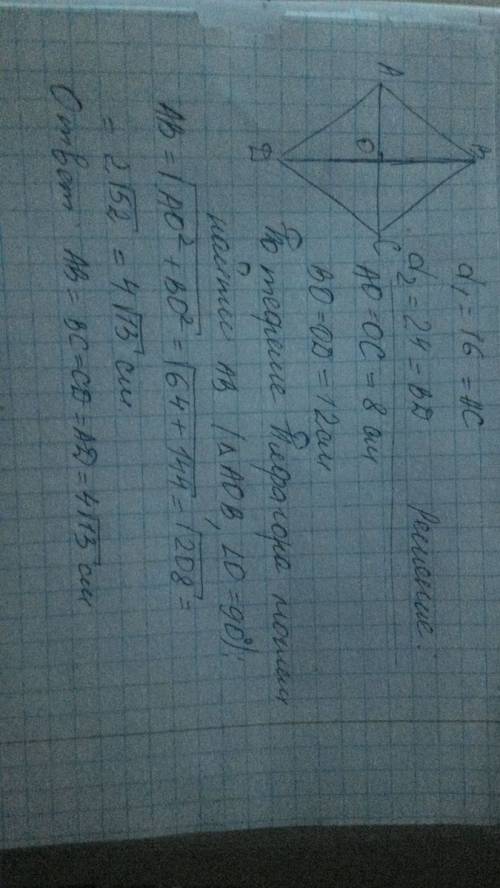 B
A
O
C
D
d₁ = 16 = AC
d₂ = 24 = BD
Решение:
AO = OC = 8 см
BO = OD = 12 см
По теореме Пифагора можем
найти AB (△AOB, ∠O = 90°):
AB = √AO² + BO² = √64 + 144 = √208 =
= 2√52 = 4√13 см
Ответ AB = BC = CD = AD = 4√13 см